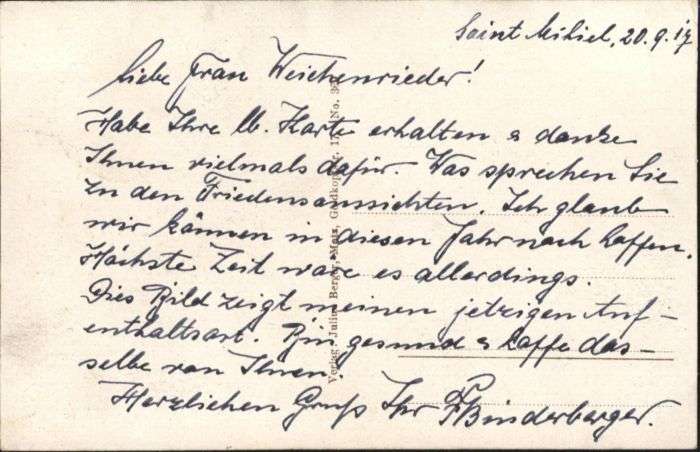 Saint Mihiel, 20.9.17
Liebe Frau Weichenrieder!
Habe Ihre lb. Karte erhalten & danke
Ihnen vielmals dafür. Was sprechen Sie
zu den Friedensaussichten. Ich glaube
wir können in diesen Jahr noch hoffen.
Höchste Zeit wäre es allerdings.
Dies Bild zeigt meinen jetzigen Auf-
enthaltsort. Bin gesund & hoffe das-
selbe von Ihnen.
Herzlichen Gruß Ihr Binderberger.
Verlag: Julius Berger, Metz, Goldkopfstr. 17. No.